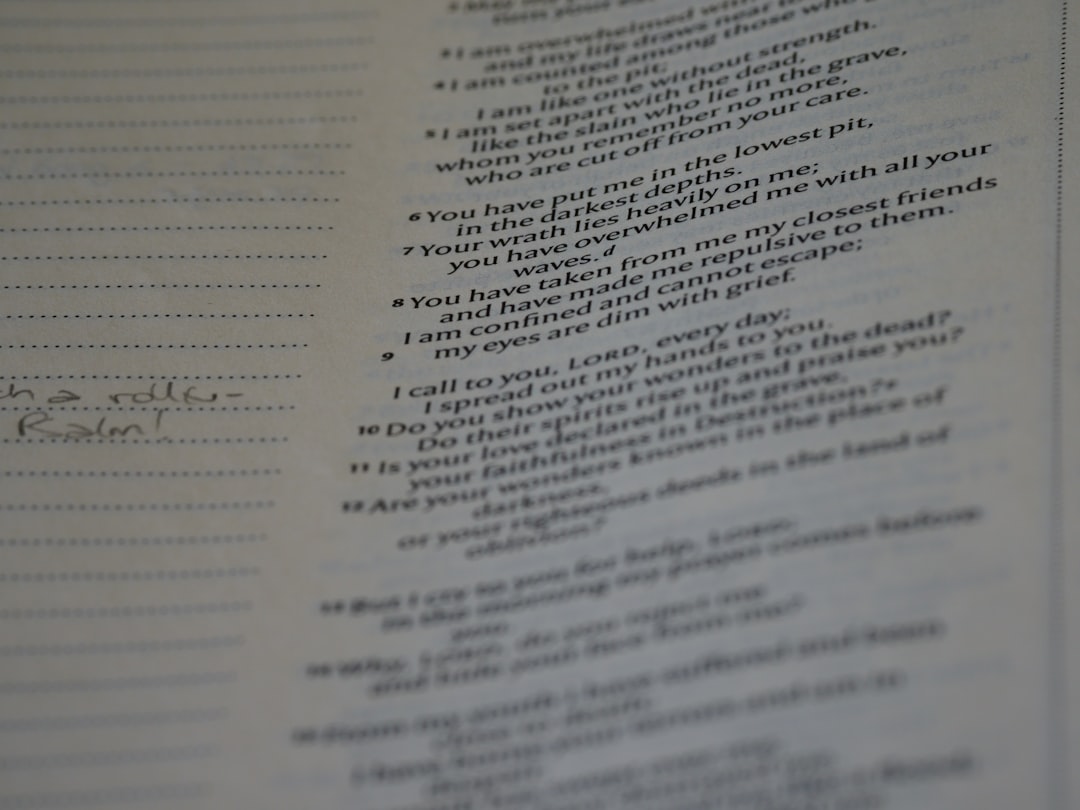 ch a rolle-
Ralm!
³ I am overwhelmed with
and my life draws near to
⁴ I am counted among those who
to the pit;
I am like one without strength.
⁵ I am set apart with the dead,
like the slain who lie in the grave,
whom you remember no more,
who are cut off from your care.
⁶ You have put me in the lowest pit,
in the darkest depths.
⁷ Your wrath lies heavily on me;
you have overwhelmed me with all your
waves.ᵈ
⁸ You have taken from me my closest friends
and have made me repulsive to them.
I am confined and cannot escape;
⁹ my eyes are dim with grief.
I call to you, LORD, every day;
I spread out my hands to you.
¹⁰ Do you show your wonders to the dead?
Do their spirits rise up and praise you?
¹¹ Is your love declared in the grave,
your faithfulness in Destruction?ᵉ
¹² Are your wonders known in the place of
darkness,
or your righteous deeds in the land of
oblivion?
¹³ But I cry to you for help, LORD;
in the morning my prayer comes before
you.
¹⁴ Why, LORD, do you reject me
and hide your face from me?
¹⁵ From my youth I have suffered and been
close to death;